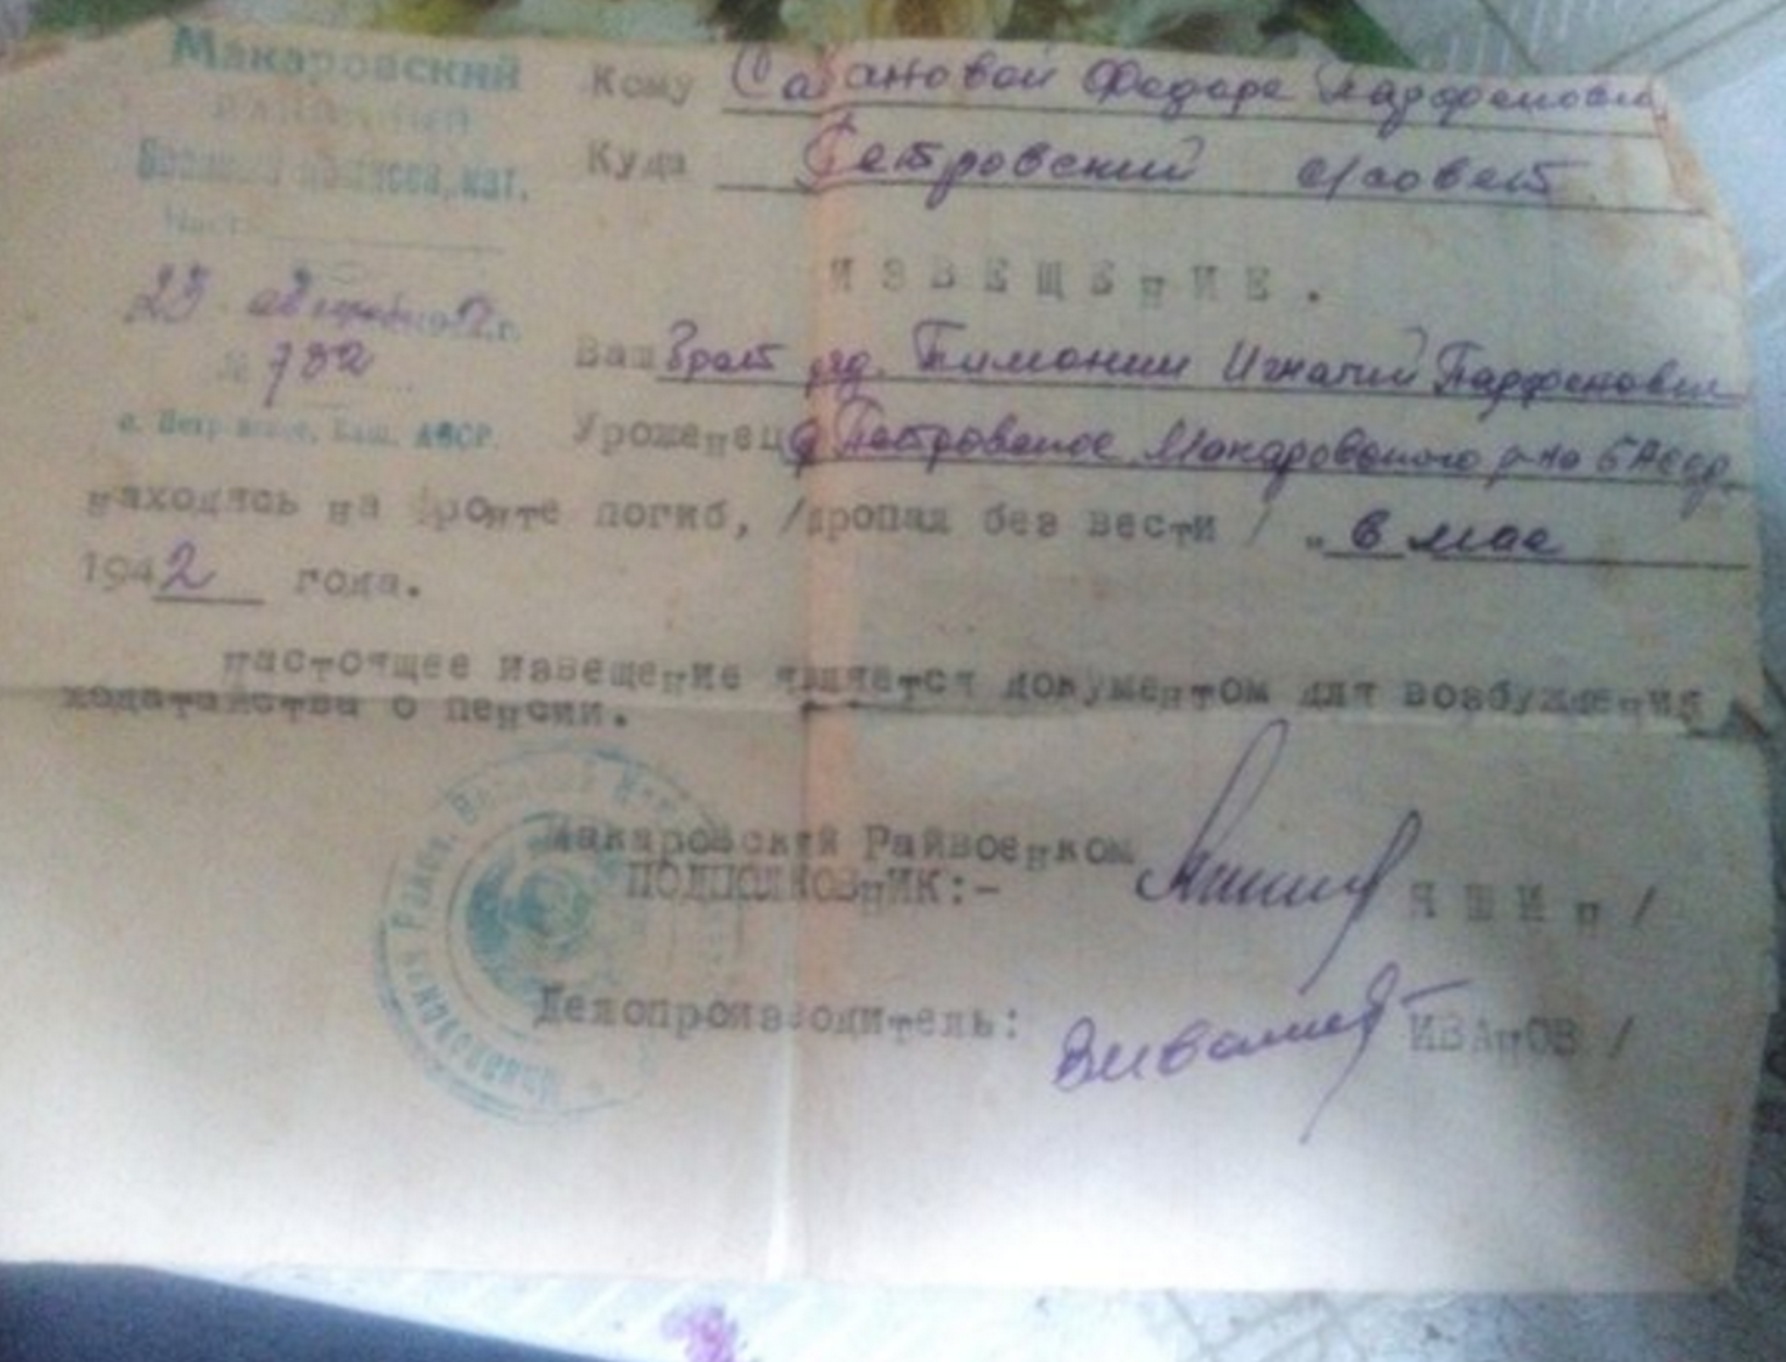 Макаровский
РАЙОННЫЙ
Военный комиссариат.
Част.
25 августа г.
№ 782
с. Петровское, Баш. АССР.
Кому Сабановой Федоре Парфеновне
Куда Петровский с/совет
ИЗВЕЩЕНИЕ.
Ваш брат ряд. Тимонин Игнатий Парфенович
Уроженец с Петровское Макаровского р-на БАССР
находясь на фронте погиб, /пропал без вести / „ в мае
1942 года.
настоящее извещение является документом для возбуждения
ходатайства о пенсии.
Макаровский Райвоенком
ПОДПОЛКОВНИК:- ЯШИН /
Делопроизводитель: ИВАНОВ /